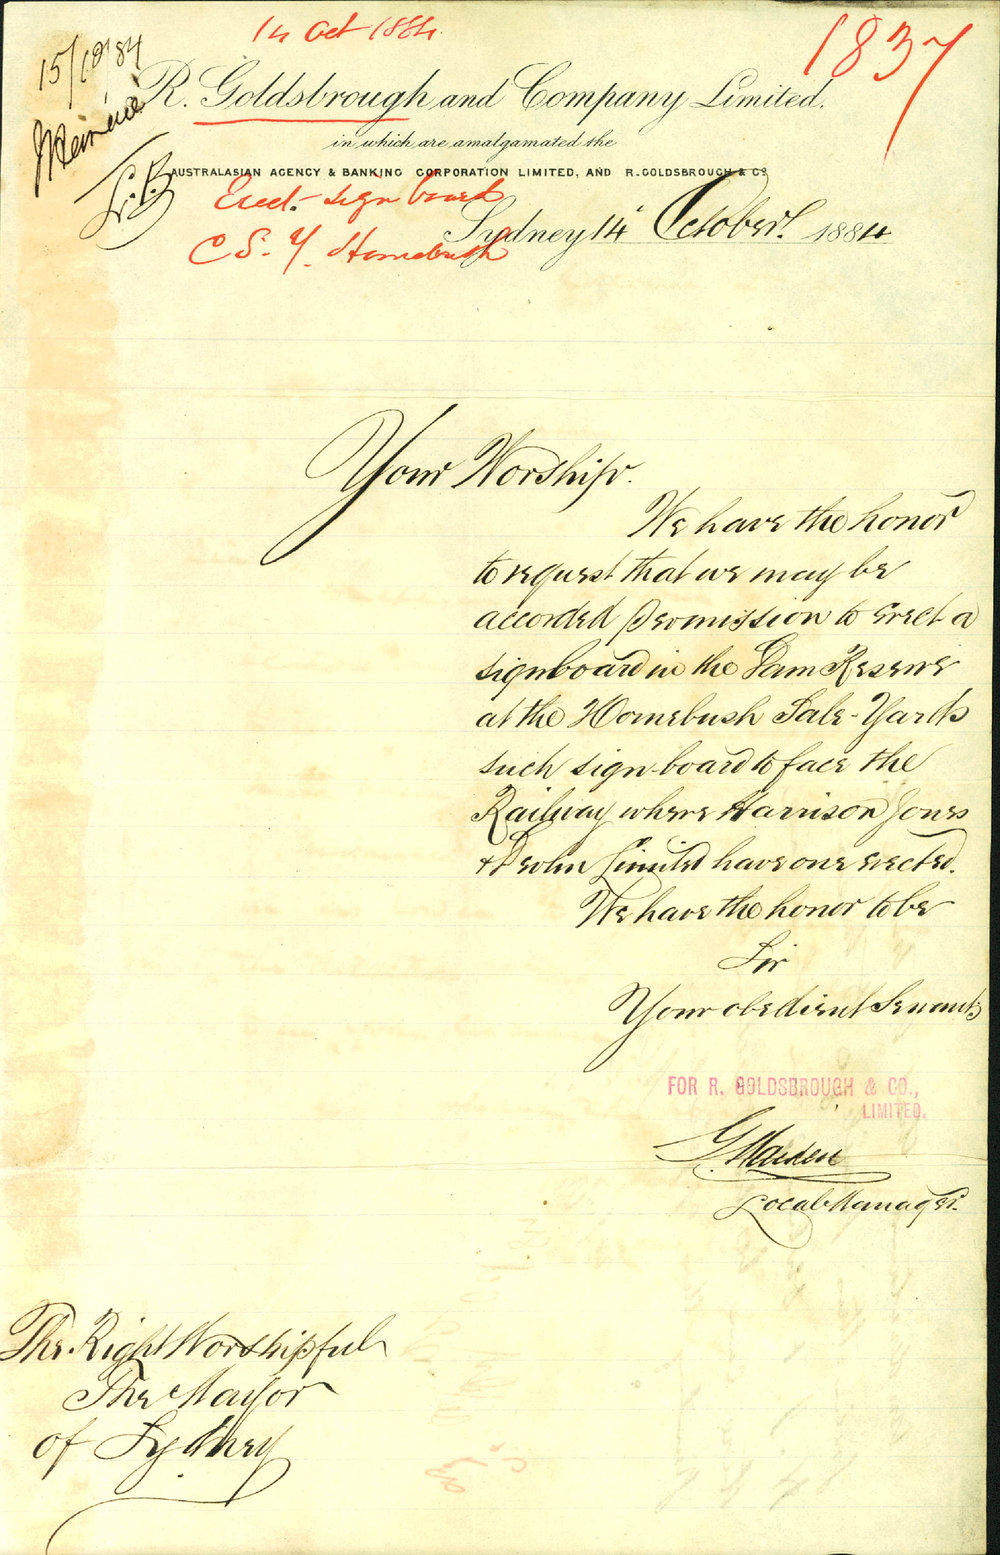 14 Oct 1884.
1837
15/10/84
R. Goldsbrough and Company Limited.
in which are amalgamated the
AUSTRALASIAN AGENCY & BANKING CORPORATION LIMITED, AND R. GOLDSBROUGH & Co
Erect. sign board
C S. Y. Homebush
Sydney 14 October. 1884
Your Worship.
We have the honor
to request that we may be
accorded permission to erect a
signboard in the Dam Reserve
at the Homebush Sale-Yards
such sign-board to face the
Railway where Harrison Jones
& Devlin Limited have one erected.
We have the honor to be
Sir
Your obedient Servants
FOR R. GOLDSBROUGH & CO.,
LIMITED.
G. Maiden
Local Manager.
The Right Worshipful
The Mayor
of Sydney